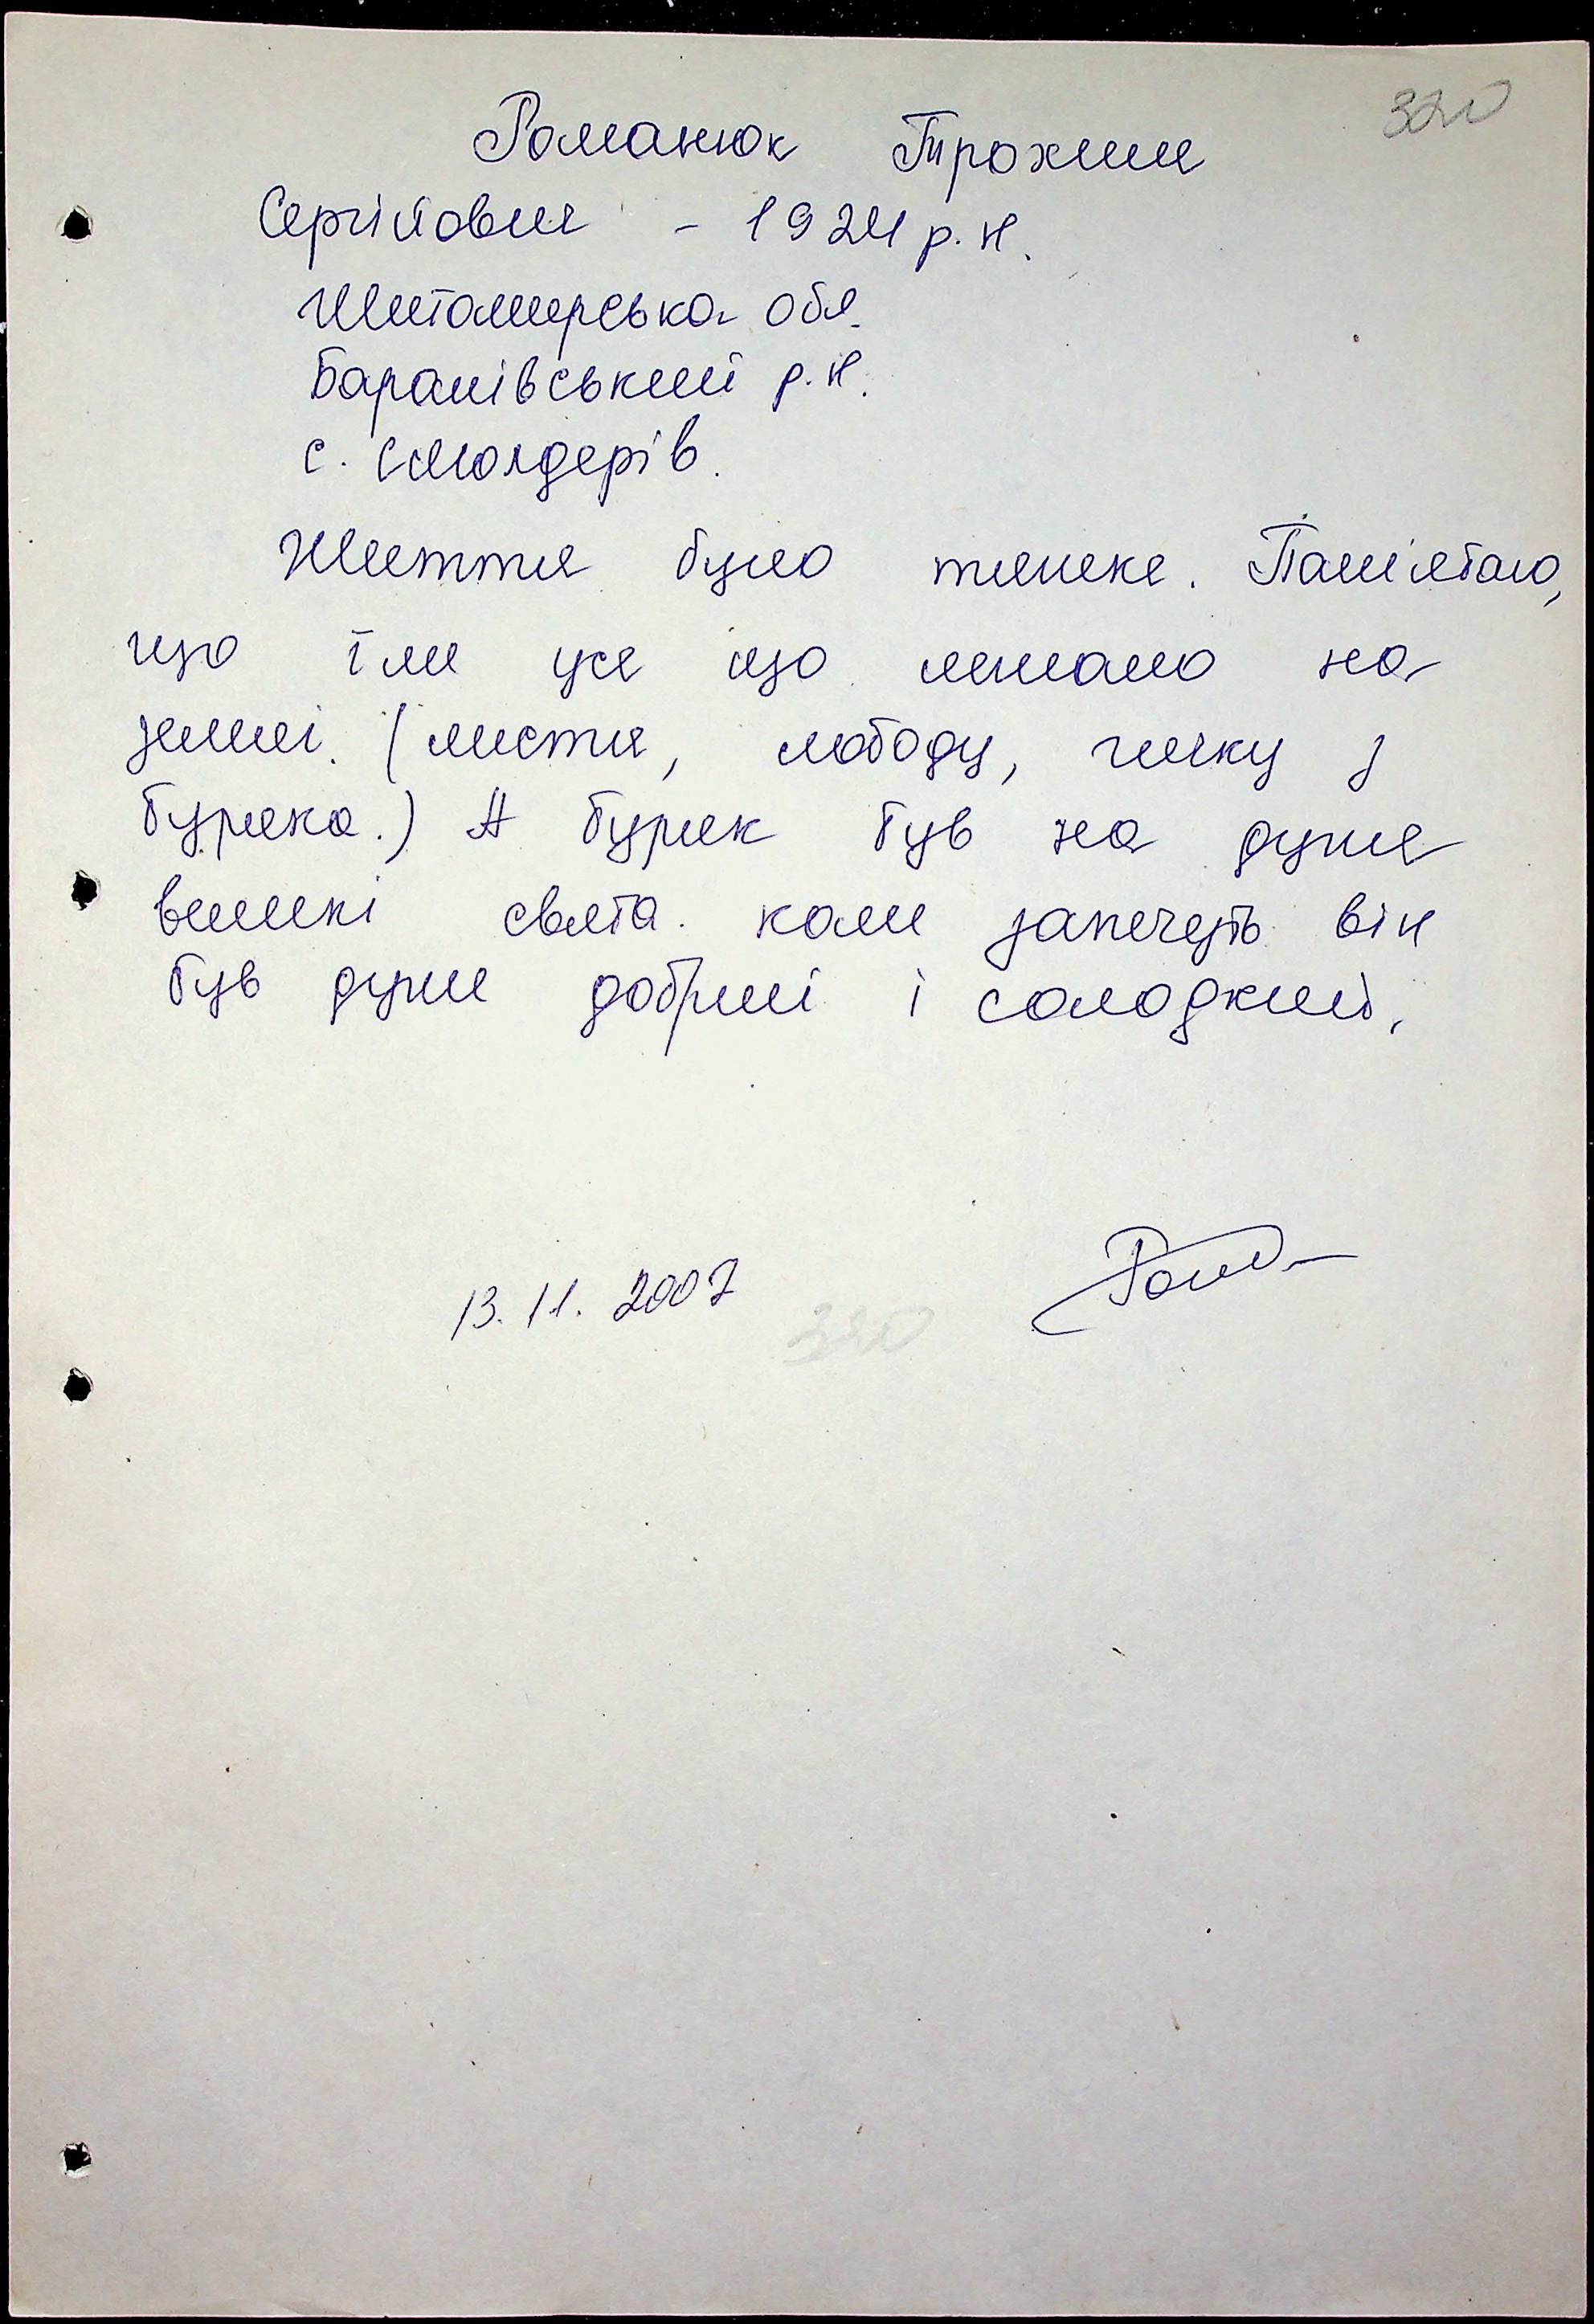 320
Романюк Трохим
Сергійович - 1924 р.н.
Житомирська обл.
Баранівський р.н.
с. Смолдерів.
Життя було тяжеке. Памі'ятаю,
що їли усе що лежало на
землі. (листя, лободу, гичку з
буряка.) А буряк був на дуже
великі свята. коли запечуть він
був дуже добрий і солодкий.
13.11.2007
320